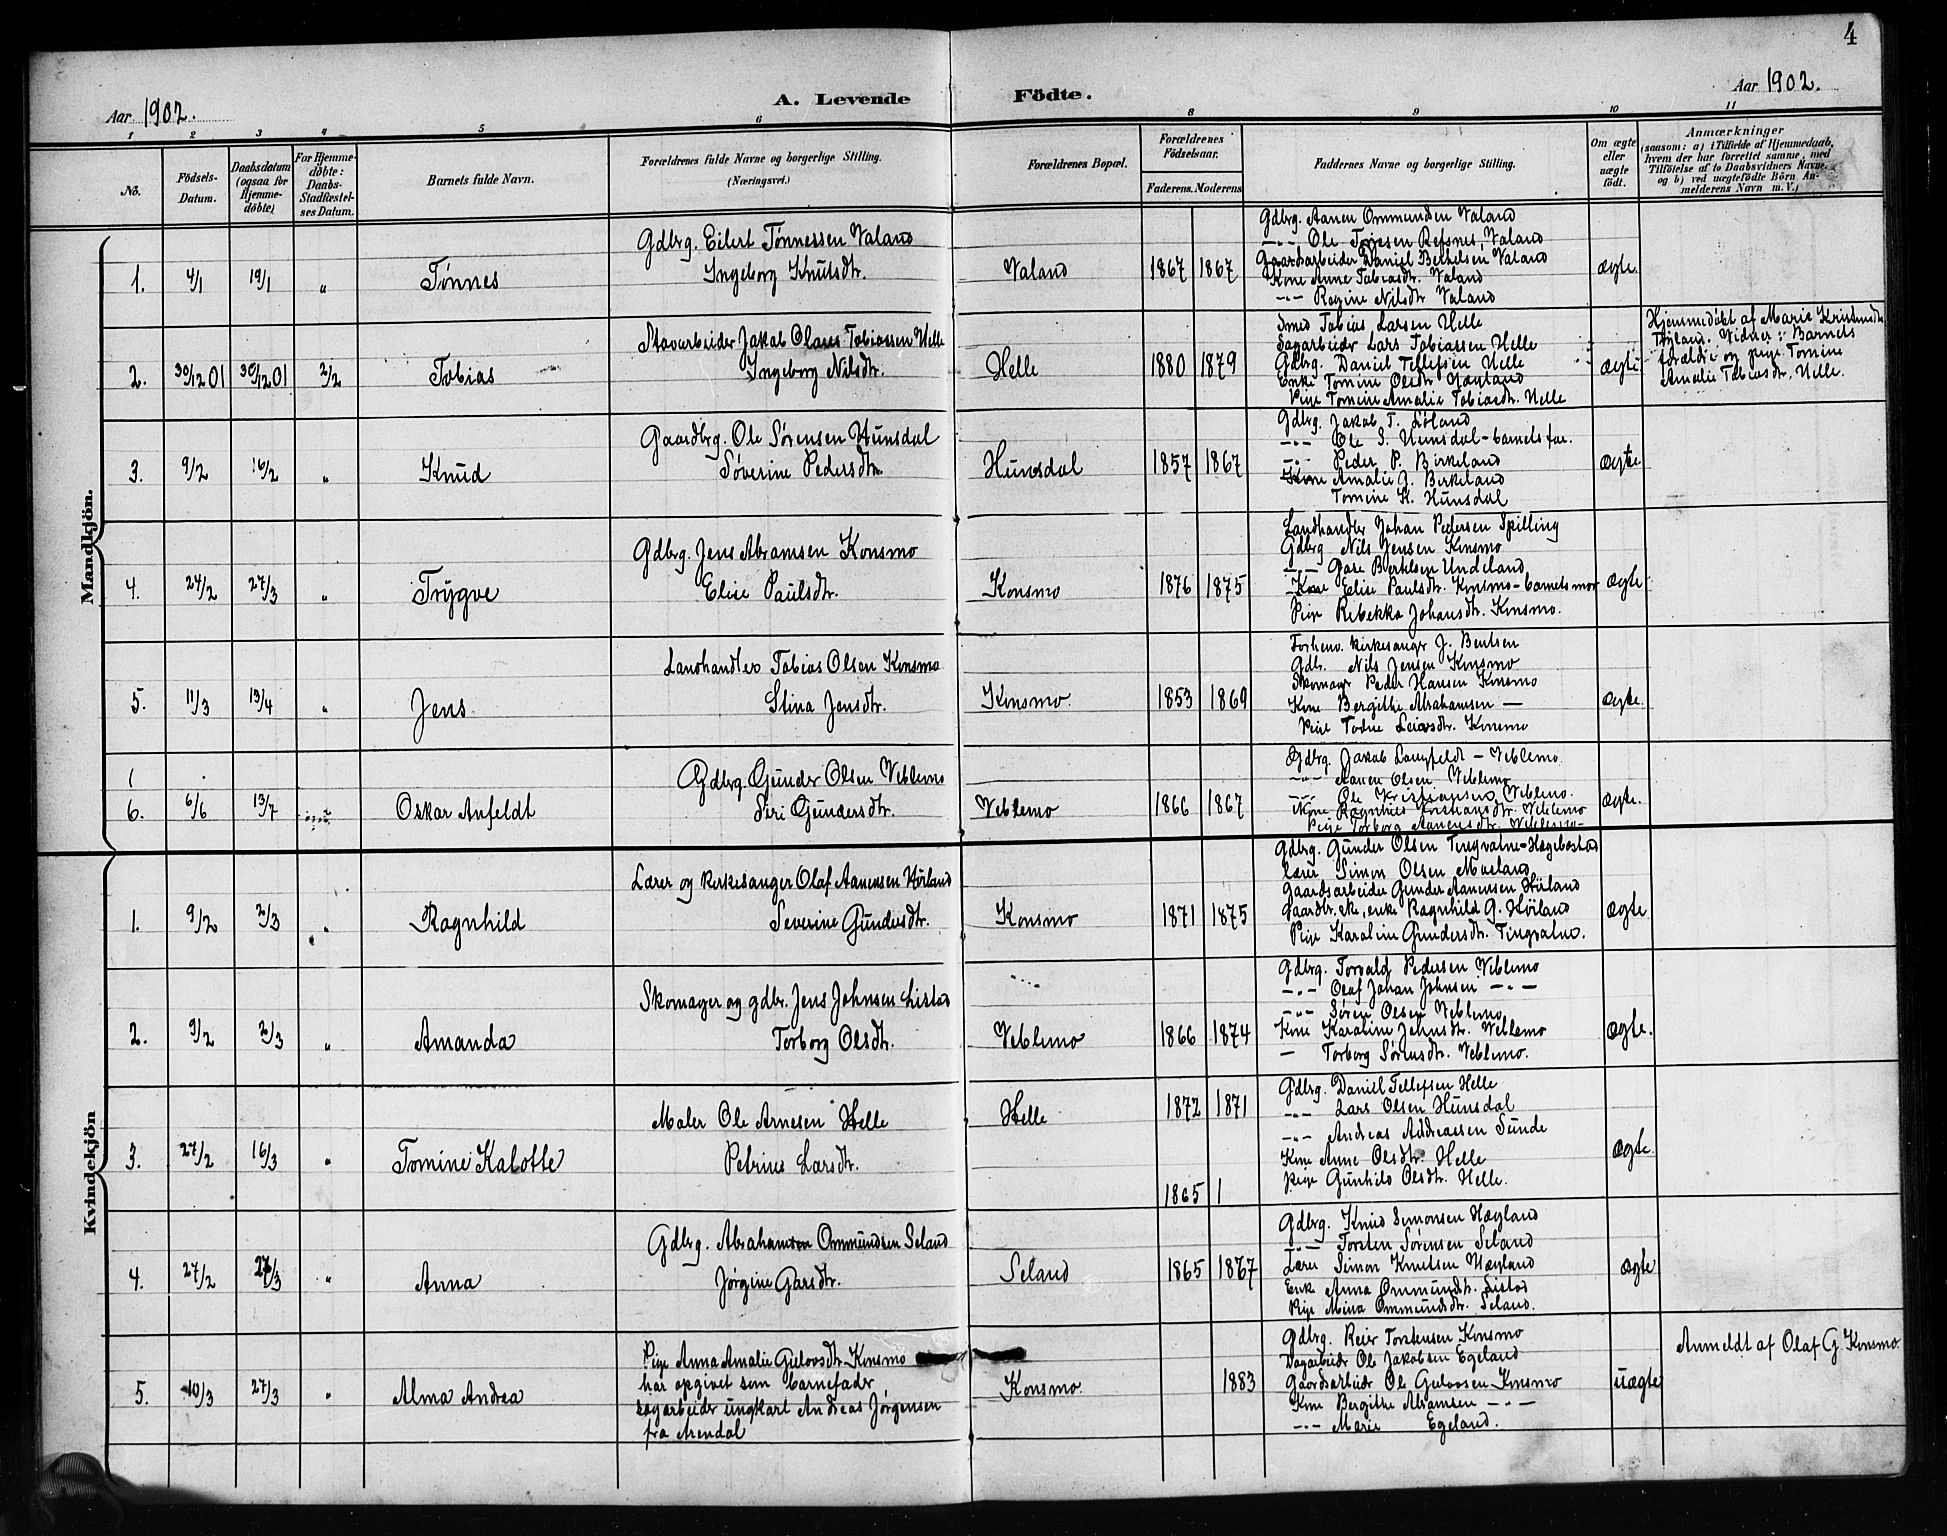 4
Aar 1902.
A. Levende Födte.
Aar 1902.
1 2 3 4 5 6 8 9 10 11
No.
Födsels-Datum.
Daabsdatum (ogsaa for Hjemme-döbte)
For Hjemme-döbte: Daabs-Stadfæstel-ses Datum.
Barnets fulde Navn.
Forældrenes fulde Navne og borgerlige Stilling.
(Næringsvei.)
Forældrenes Bopæl.
Forældrenes Födselsaar.
Faderens. Moderens.
Faddernes Navne og borgerlige Stilling.
Om ægte eller uægte födt.
Anmærkninger
(saasom: a) i Tilfælde af Hjemmedaab, hvem der har forrettet samme, med Tilföielse af to Daabsvidners Navne, og b) ved uægtefödte Börn An-melderens Navn m. V.)
Mandkjön.
1. 4/1 19/1 " Tønnes
Gdbrg. Eilert Tønnessen Valand
Ingeborg Knutsdtr.
Valand 1867 1867
Gdbrg. Aanen Ommundsen Valand
-"- Ole Refsnes, Valand
Gaardarbeider Daniel Valand
Kone Anne Tobiasdtr. Valand
-"- Ragine Nilsdtr Valand
ægte.
2. 30/12 01 30/12 01 2/2 Tobias
Jakob Olaus Tobiassen Helle
Ingeborg Nilsdtr.
Helle 1880 1879
Smed Tobias Larsen Helle
Sagarbeider Lars Tobiassen Helle
Gdbrg. Daniel Tellefsen Helle
Enke Tomine Olsdtr Hægland
Pige Tomine Amalie Tobiasdtr. Helle
ægte
Hjemmedøbt af Marie
Vidner: Barnets
forældre og pige Tomine
Amalie Tobiasdtr. Helle.
3. 9/2 16/2 " Knud
Gaardbrg. Ole Sørensen Hunsdal
Søverine Pedersdtr.
Hunsdal 1857 1867
Gdbrg. Jakob T.
-"- Ole S. Hunsdal - barnets far.
-"- Peder P. Birkeland
Kone Amalie G. Birkeland
Tomine K. Hunsdal
ægte
4. 24/2 27/3 " Trygve
Gdbrg. Jens Abramsen Konsmo
Elise Paulsdtr.
Konsmo 1876 1875
Landhandler Johan Pedersen Spilling
Gdbrg Nils Jensen Konsmo
-"- Gare Bertelsen Undeland
Kone Elise Paulsdtr. Konsmo - barnets mor
Pige Rebekka Johansdtr. Konsmo.
ægte
5. 11/3 13/4 " Jens
Landhandler Tobias Olsen Konsmo
Stina Jensdtr.
Konsmo. 1853 1869
Forhenv. kirkesanger J. Bentsen
Gdb. Nils Jensen Konsmo
Skomager Peder Hansen Konsmo
Kone Bergithe Abrahamsen —
Pige Konsmo
ægte.
6. 6/6 13/7 Oskar Anfeldt
Gdbrg. Gunder Olsen Veblemo
Siri Gundersdtr.
Veblemo 1866 1867
Gdbrg. Jakob Langfeldt - Veblemo.
-"- Aanen Olsen Veblemo
-"- Ole Kristiansen Veblemo.
Kone Veblemo
Pige Torborg Aanensdtr. Veblemo
ægte.
Kvindekjön
1. 9/2 2/3 " Ragnhild
Lærer og kirkesanger Olaf Aanensen
Severine Gundersdtr.
Konsmo 1871 1875
Gdbrg. Gunder Olsen Tingvatne - Hægebostad
lærer Simon Olsen
Gaardsarbeider Gunder Aanensen
enke Ragnhild G.
Pige Karaline Gundersdtr. Tingvatne.
ægte
2. 9/2 2/3 " Amanda
Skomager og gdbr. Jens Johnsen Listad
Torborg Olsdtr.
Veblemo 1866 1874
Gdbrg. Torvald Pedersen Veblemo
-"- Olaf Johan Johnsen -"-
-"- Søren Olsen Veblemo
Kone Karaline Johnsdtr. Veblemo
— Torborg Sørensdtr. Veblemo.
ægte.
3. 27/2 16/3 " Tomine Kalotte
Maler Ole Arnesen Helle
Petrine Larsdtr.
Helle 1872 1871
1865 1
Gdbrg. Daniel Tellefsen Helle
-"- Lars Olsen Hunsdal
-"- Andreas Andreassen Sunde
Kone Anne Olsdtr. Helle
Pige Gunhild Olsdtr. Helle.
ægte.
4. 27/2 27/3 " Anna
Gdbrg. Ommundsen Seland
Jørgine Garsdtr.
Seland 1865 1867
Gdbrg. Knud Simonsen Hægland
-"- Torsten Sørensen Seland
Lærer Simon Knutsen Hægland
Enke Anna Ommundsdtr. Listad
Pige Mina Ommundsdtr. Seland.
ægte
5. 10/3 27/3 " Alma Andrea
Pige Anna Amalie Gulovsdtr Konsmo
har opgivet som barnefader
sagarbeider ungkarl Andreas Jørgensen
fra Arendal
Konsmo. 1883
Gdbrg. Reier Torstensen Konsmo
Dagarbeider Ole Jakobsen Egeland
Gaardsarbeider Ole Gulovsen Konsmo
Kone Bergithe Abramsen -"-
-"- Marie Egeland.
uægte
Anmeldt af Olaf G. Konsmo.